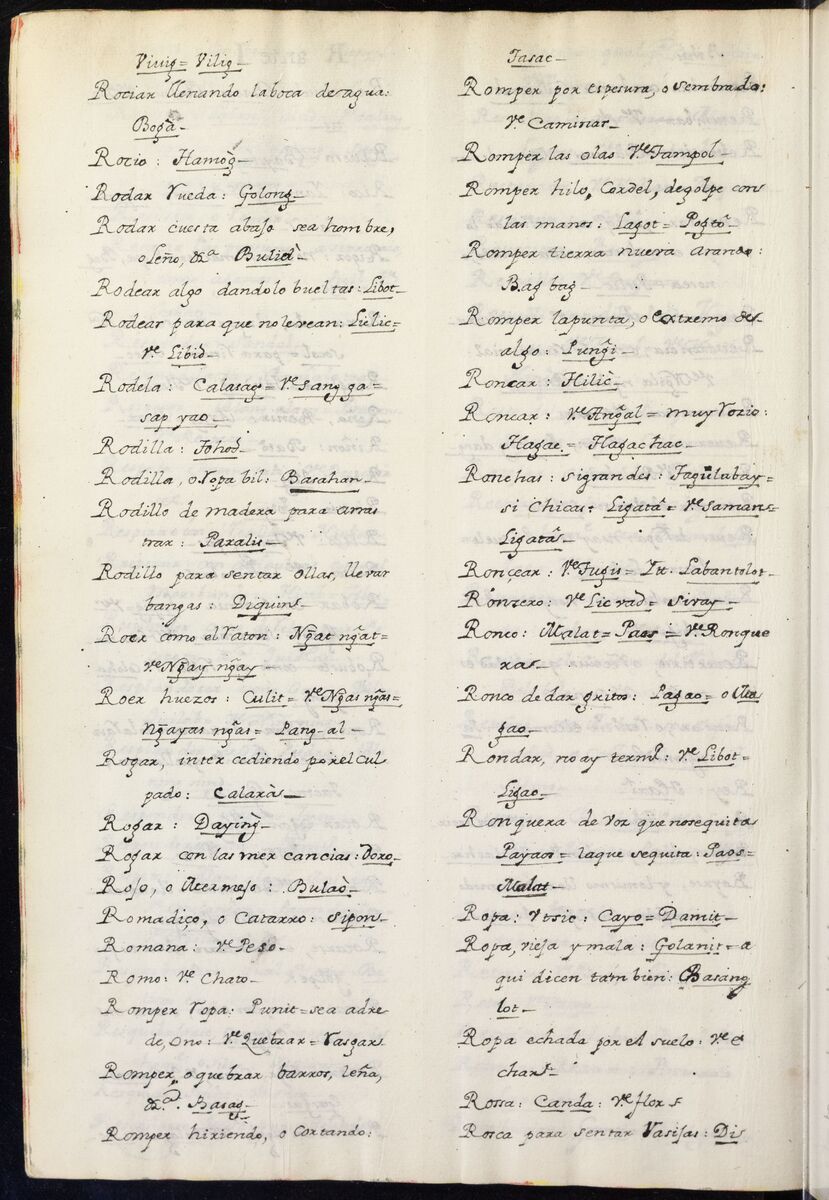 Viuig= Vilig_
Rociar llenando laboca de agua:
Bogà_
Rocio: Hamog_
Rodar Rueda: Golong_
Rodar cuesta abajo sea hombre,
o leño, &ª Bulid_
Rodear algo dandolo bueltas: Libot_
Rodear para que no le vean: Lielic=
Vᵉ Libid_
Rodela: Calasag= Vᵉ Sang ga=
sap yao_
Rodilla: Tohod_
Rodilla, o Ropa bil: Basahan_
Rodillo de madera para arras
trar: Paralis_
Rodillo para sentar ollas, llevar
bangas: Diquins_
Roer como el Raton: Ng̃at ng̃at=
Vᵉ Ng̃ay ng̃ay_
Roer huezos: Culit= Vᵉ Ng̃as ng̃as=
Ng̃ayas ng̃as= Pang-al_
Rogar, inter cediendo por el cul
pado: Calarà_
Rogar: Dayìng_
Rogar con las mer cancias: Doro_
Rojo, o Vermejo: Bulaò_
Romadiço, o Catarro: Sipon_
Romana: Vᵉ Peso_
Romo: Vᵉ Chato_
Romper Ropa: Punit= sea adre
de, ono: Vᵉ Quebrar= Rasgar
Romper, o quebrar barros, leña,
&ª. Basag_
Romper hiriendo, o Cortando:
Tasac_
Romper por espesura, o sembrado:
Vᵉ Caminar_
Romper las olas Vᵉ Tampol_
Romper hilo, Cordel, de golpe con
las manos: Lagot= Pogtô_
Romper tierra nueva arando:
Bag bag_
Romper la punta, o extremo de
algo: Pung̃i_
Roncar: Hilic_
Roncar: Vᵉ Ang̃al= muy Rozio:
Hagac= Hagachac_
Ronchas: si grandes: Tagulabay=
si Chicas: Ligatâ= Vᵉ Saman=
Ligatâ_
Ronçear: Vᵉ Fugis= Yt. Labantolot_
Ronzero: Vᵉ Lic vad= Sivay_
Ronco: Malat= Paos= Vᵉ Ronque
ras_
Ronco de dar gritos: Pagao= o
gao_
Rondar, no ay termº: Vᵉ Libot=
Ligao_
Ronquera de voz que nosequita
Payaos= laque sequita: Paos=
Malat_
Ropa: Vtsic: Cayo= Damit_
Ropa, vieja y mala: Golanit= a
qui dicen tambien: Basang
lot_
Ropa echada por el suelo: Vᵉ e
char_
Rossa: Canda: Vᵉ flor
Rosca para sentar Vasijas: Di